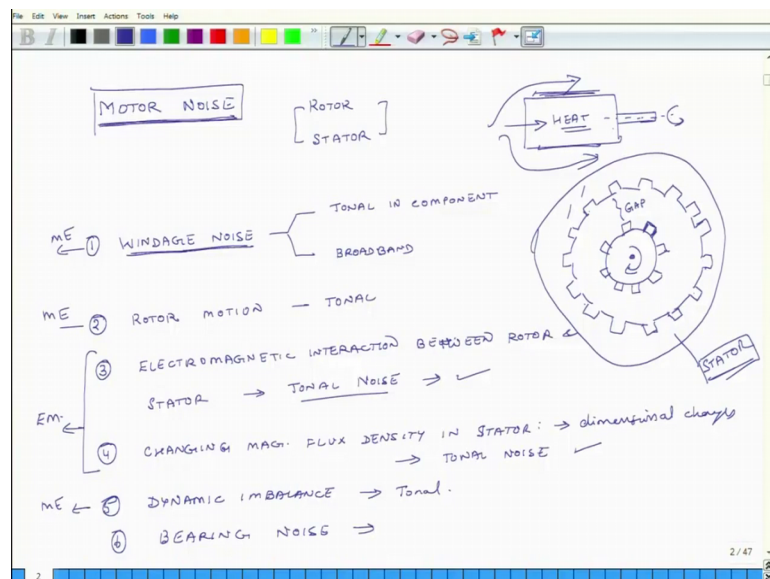 File Edit View Insert Actions Tools Help
B I
MOTOR NOISE
ROTOR
STATOR
HEAT
GAP
STATOR
ME ← ① WINDAGE NOISE
TONAL IN COMPONENT
BROADBAND
ME — ② ROTOR MOTION — TONAL
③ ELECTROMAGNETIC INTERACTION BETWEEN ROTOR &
STATOR → TONAL NOISE → ✓
EM. ←
④ CHANGING MAG. FLUX DENSITY IN STATOR: → dimensional changes
→ TONAL NOISE ✓
ME ← ⑤ DYNAMIC IMBALANCE → Tonal.
⑥ BEARING NOISE →
2 / 47
2